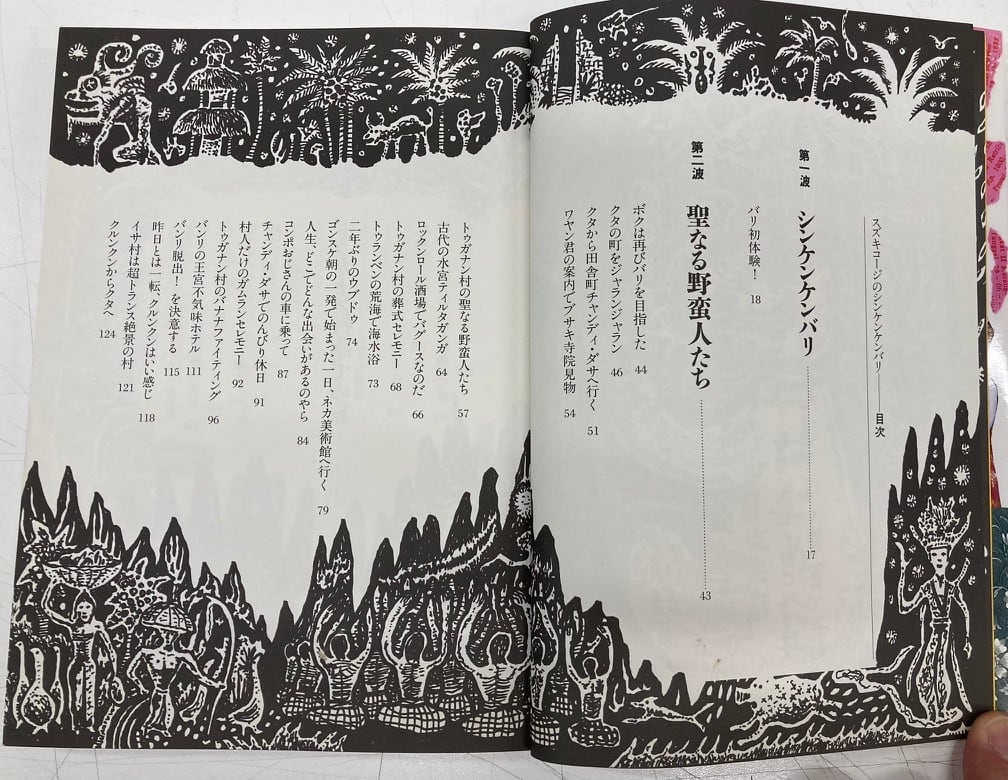 スズキコージのシンケンケンバリ――目次
第一波 シンケンケンバリ 17
バリ初体験！ 18
第二波 聖なる野蛮人たち 43
ボクは再びバリを目指した 44
クタの町をジャランジャラン 46
クタから田舎町チャンディ・ダサへ行く 51
ワヤン君の案内でブサキ寺院見物 54
トゥガナン村の聖なる野蛮人たち 57
古代の水宮ティルタガンガ 64
ロックンロール酒場でバグースなのだ 66
トゥガナン村の葬式セレモニー 68
トゥランベンの荒海で海水浴 73
二年ぶりのウブドゥ 74
ゴンスケ朝の一発で始まった一日、ネカ美術館へ行く 79
人生、どこでどんな出会いがあるのやら 84
コンポおじさんの車に乗って 87
チャンディ・ダサでのんびり休日 91
村人だけのガムランセレモニー 92
トゥガナン村のバナナファイティング 96
バンリの王宮不気味ホテル 111
バンリ脱出！を決意する 115
昨日とは一転、クルンクンはいい感じ 118
イサ村は超トランス絶景の村 121
クルンクンからクタへ 124